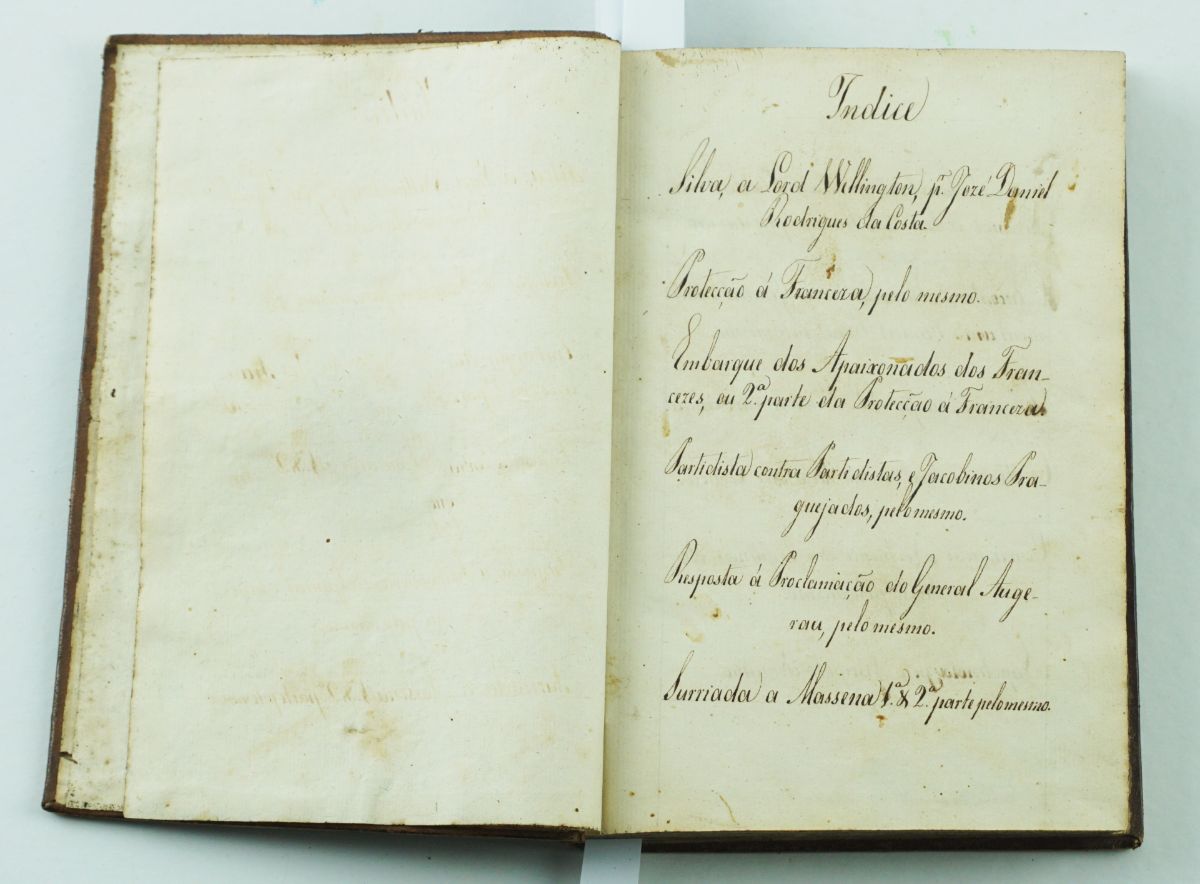 Indice
Silva, a Lord Wellington, pr. Jozé Daniel
Rodrigues da Costa.
Protecção á Franceza, pelo mesmo.
Embarque dos Apaixonados dos Fran-
cezes, ou 2.ª parte da Protecção á Franceza.
Partidista contra Partidistas, e Jacobinos Pra-
guejados, pelo mesmo.
Resposta á Proclamação do General Auge-
rau, pelo mesmo.
Surriada a Massena 1.ª & 2.ª parte pelo mesmo.